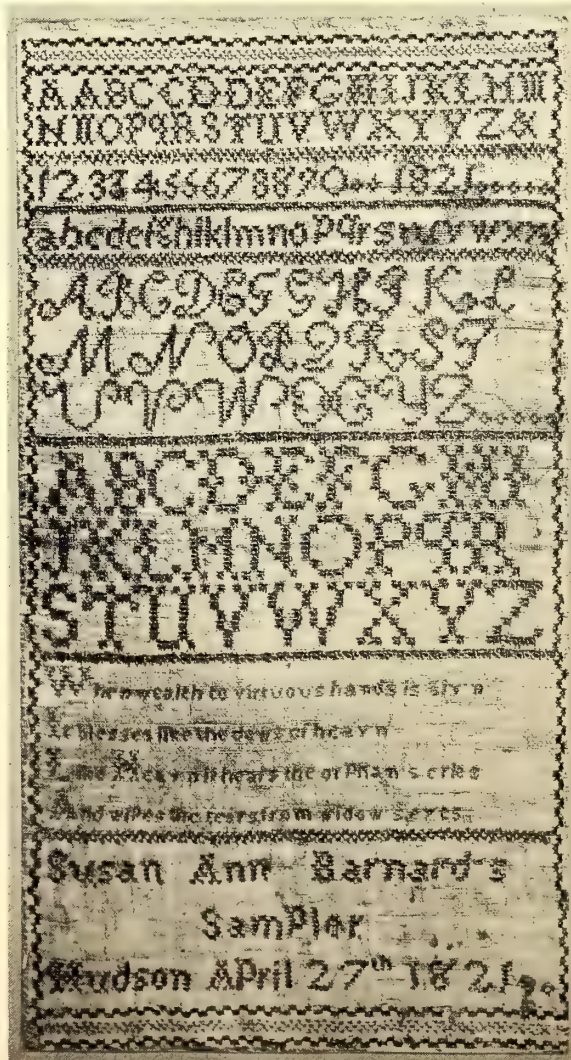 A A B C C D D E F G H I J K L M M
N N O P q R S T U V W X Y y Z &
1 2 3 3 4 5 6 6 7 8 8 9 0 1821
a b c d e f g h i k l m n o P q r s
A B C D E F G H I J K L
M N O P Q R S T
U V W X Y Z
A B C D E F G H I
J K L M N O P q R
S T U V W X Y Z
When wealth to virtuous hands is givn
It blesses like the dews of heavn
Like Heavn it hears the orPhan's cries
And wiPes the tears from widows eyes
Susan Ann Barnard's
SamPler
Hudson APril 27th 1821